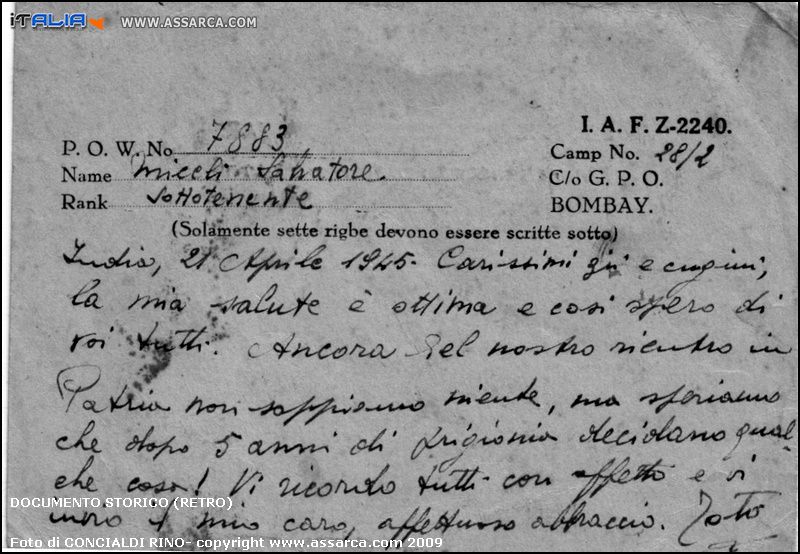 iTALIA www.ASSARCA.com
I. A. F. Z-2240.
P. O. W. No 7883
Camp No. 28/2
Name Miceli Salvatore.
C/o G. P. O.
Rank Sottotenente
BOMBAY.
(Solamente sette rigbe devono essere scritte sotto)
India, 21 Aprile 1945. Carissimi zii e cugini,
la mia salute è ottima e così spero di
voi tutti. Ancora del nostro rientro in
Patria non sappiamo niente, ma speriamo
che dopo 5 anni di prigionia decidano qual-
che cosa! Vi ricordo tutti con affetto e vi
invio il mio caro, affettuoso abbraccio. Totò
DOCUMENTO STORICO (RETRO)
Foto di CONCIALDI RINO- copyright www.assarca.com 2009